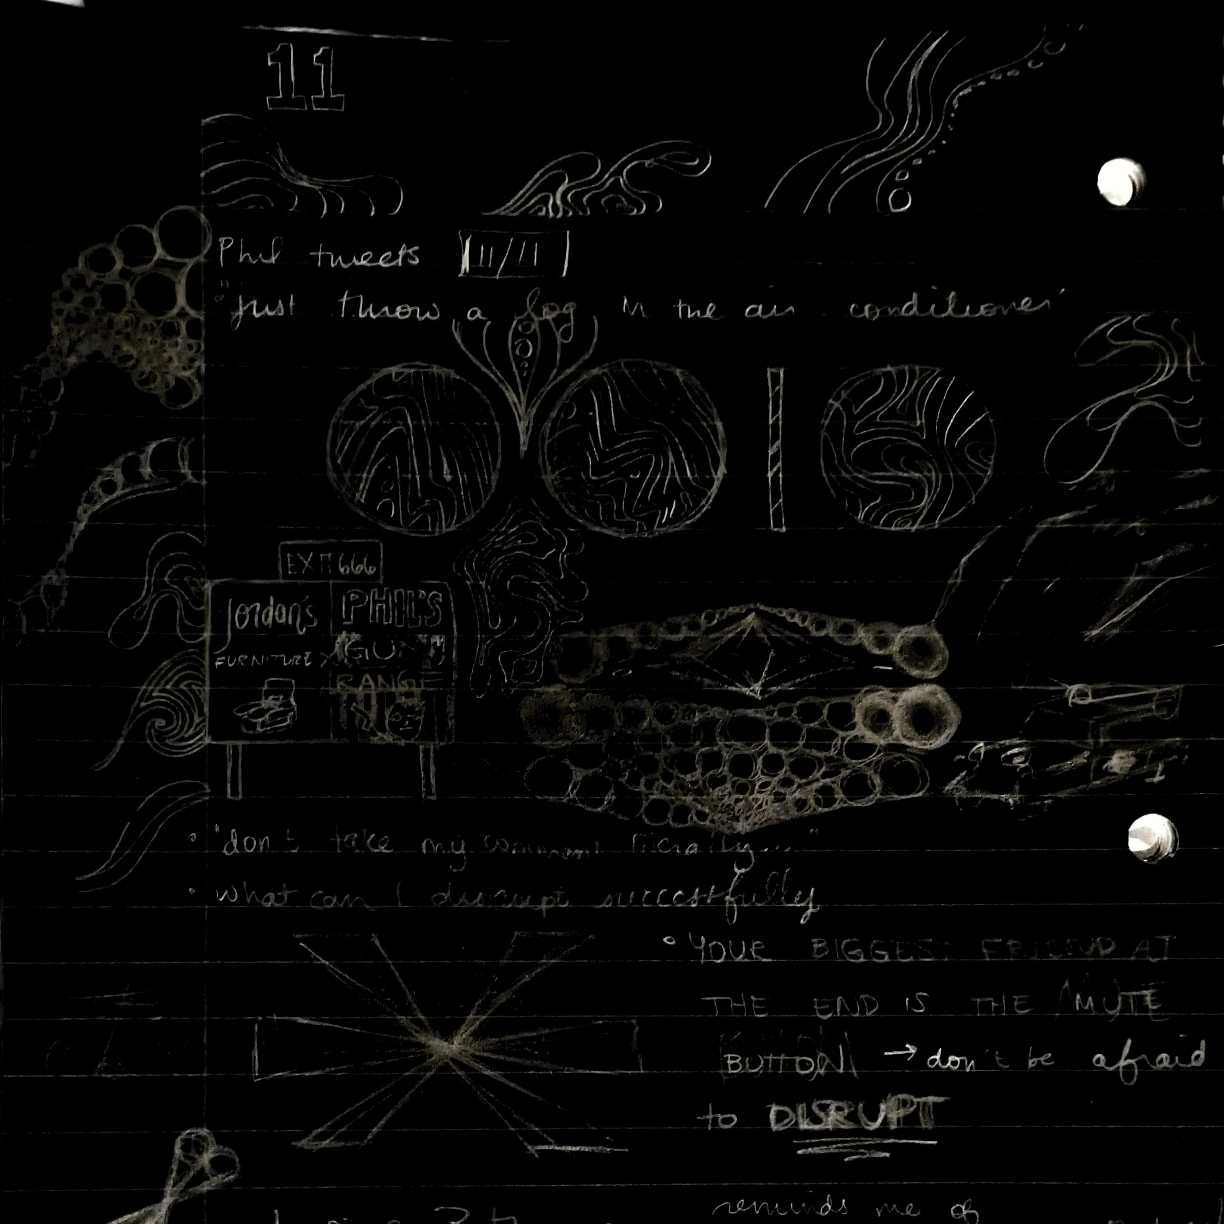 11
Phil tweets 11/11
"just throw a fog in the air conditioner"
EXIT 666
Jordan's
FURNITURE
PHIL'S
GUN
RANGE
• "don't take my comment literally..."
• what can I disrupt successfully
• YOUR BIGGEST FRIEND AT
THE END IS THE MUTE
BUTTON → don't be afraid
to DISRUPT
reminds me of